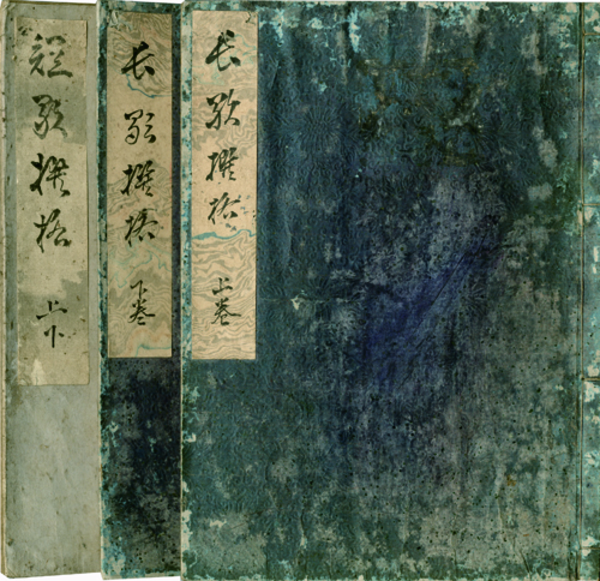 長歌撰格 上巻
長歌撰格 下巻
短歌撰格 上下